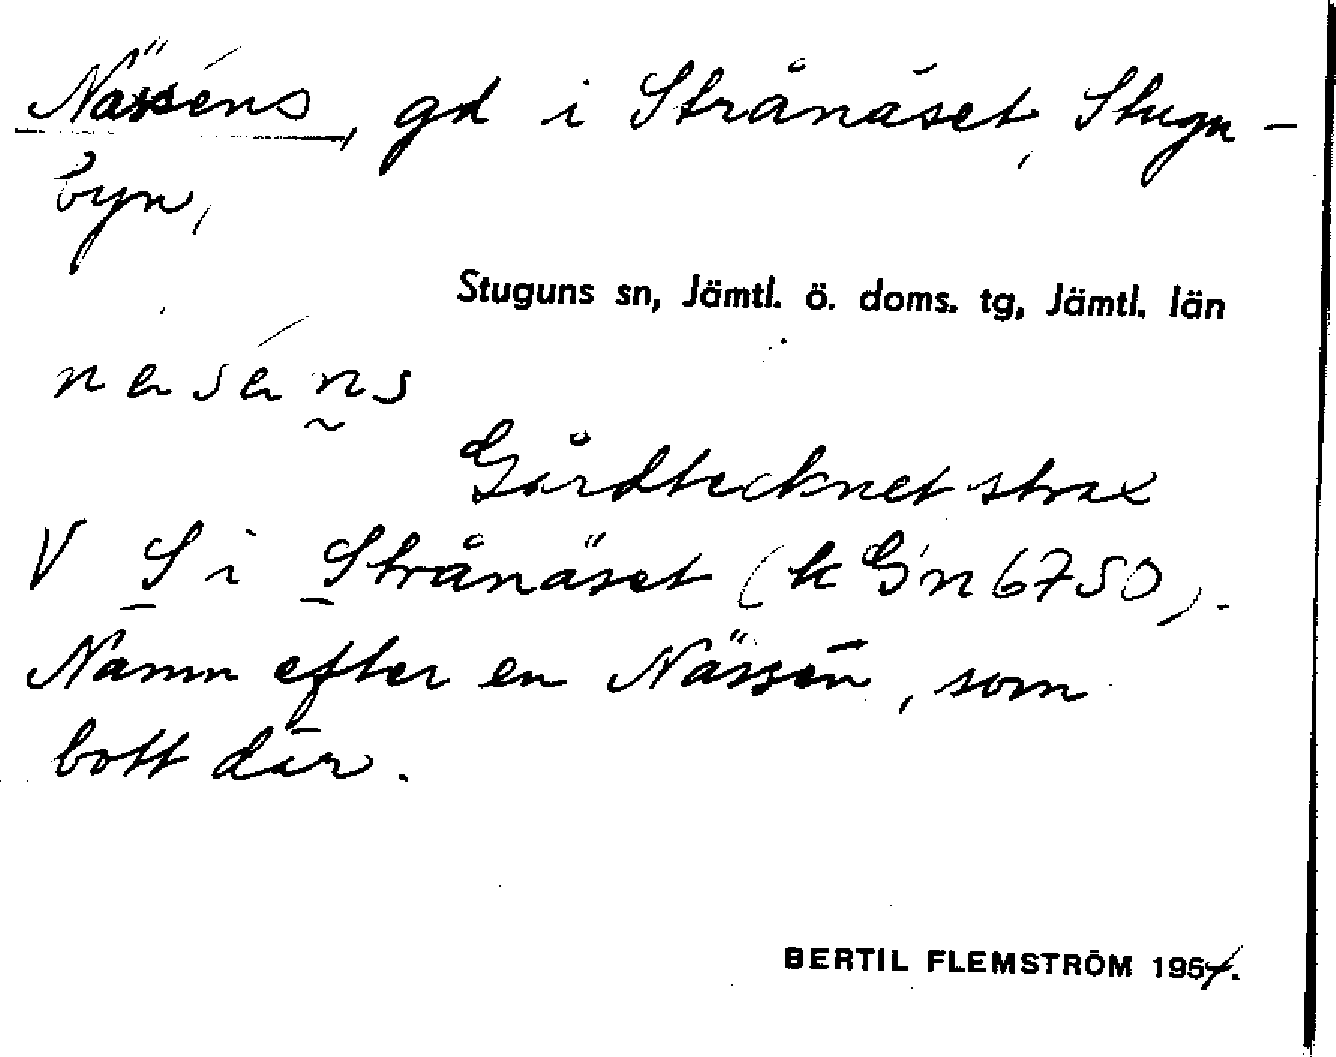 Nässéns, gd i Strånäset, Stugu-
byn,
Stuguns sn, Jämtl. ö. doms. tg, Jämtl. län
Gårdtecknet strax
V S i Strånäset (k G:n 6750).
Namn efter en Nässén, som
bott där.
BERTIL FLEMSTRÖM 1954.